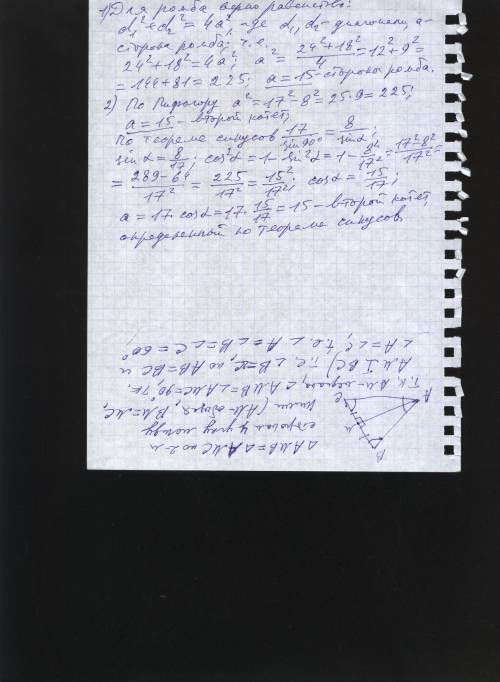 1) Для ромба верно равенство:
d₁²+d₂² = 4a², где d₁, d₂ - диагонали, a-
сторона ромба; т.е.
24²+18² = 4a²; a² = (24²+18²)/4 = 12²+9² =
= 144+81 = 225; a = 15 - сторона ромба.
2) По Пифагору a² = 17²-8² = 25·9 = 225;
a = 15 - второй катет,
По теореме синусов 17/sin90° = 8/sinα;
sinα = 8/17; cos²α = 1-sin²α = 1-8²/17² = (17²-8²)/17² =
= (289-64)/17² = 225/17² = 15²/17²; cosα = 15/17;
a = 17·cosα = 17·15/17 = 15 - второй катет,
определенный по теореме синусов
△AMB = △AMC по 2-м
сторонам и углу между
ними (AM общая, BM = MC,
∠AMB = ∠AMC = 90°, т.к.
AM ⊥ BC) т.е. ∠B = ∠C, но AB = BC и
∠A = ∠C, т.е. ∠A = ∠B = ∠C = 60°
A
B
C
M